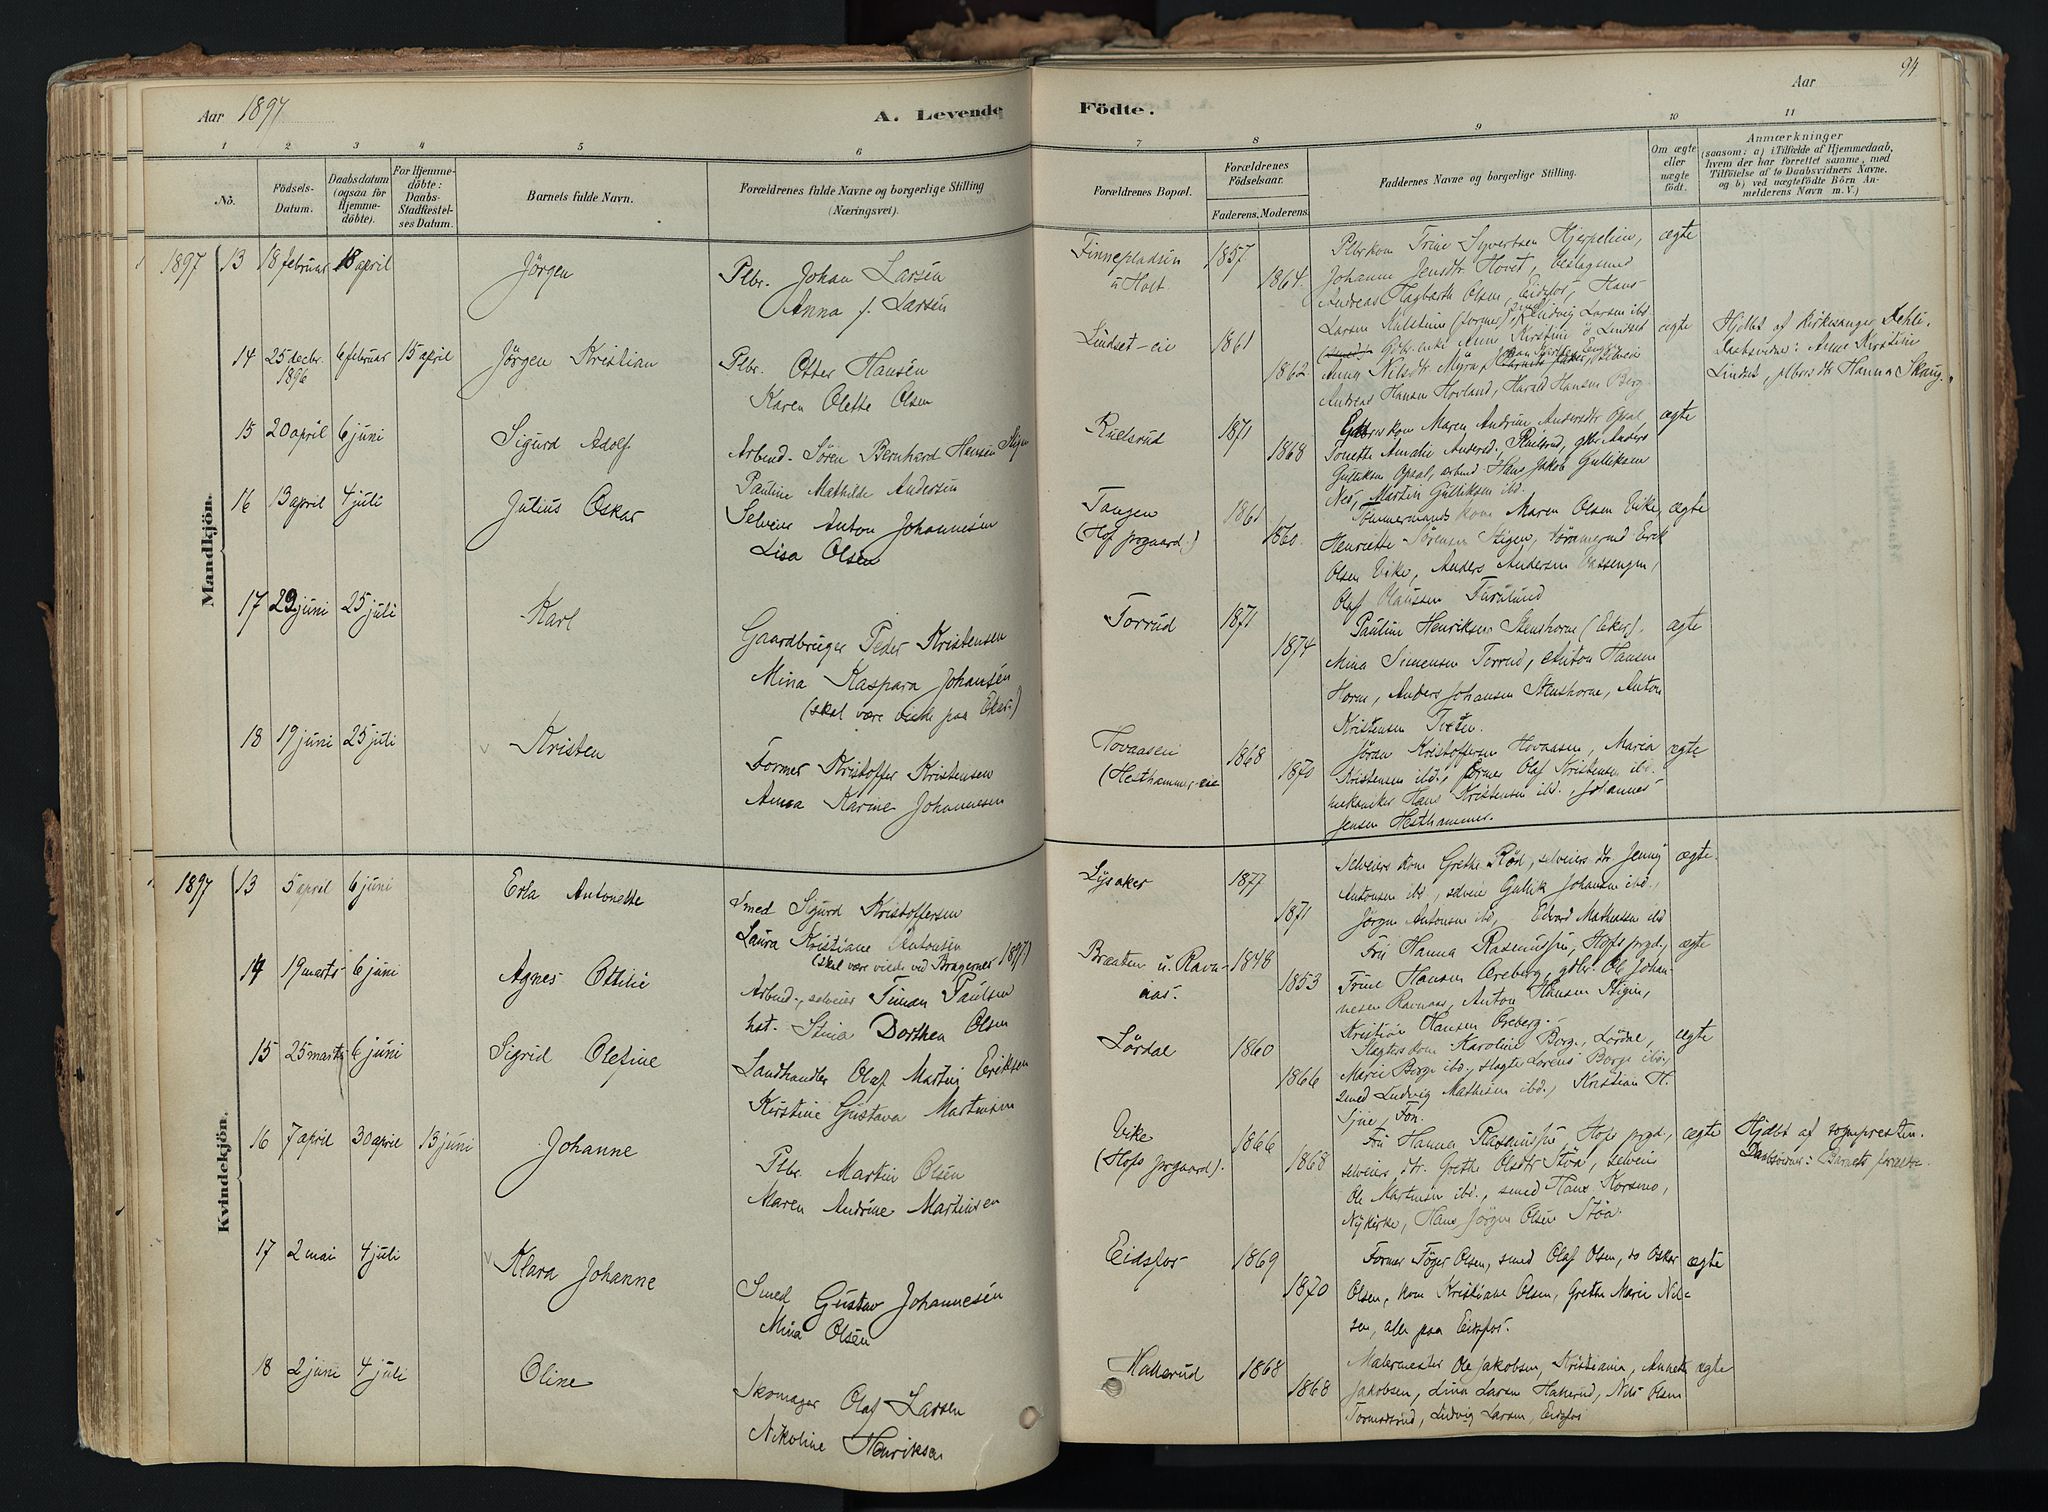 Aar 1897
A. Levende
1 2 3 4 5 6
No.
Födsels-Datum.
Daabsdatum (ogsaa for Hjemmedöbte).
For Hjemmedöbte: Daabs-Stadfæstelses Datum.
Barnets fulde Navn.
Forældrenes fulde Navne og borgerlige Stilling
(Næringsvei).
Mandkjön.
1897 13 18 februar 18 april Jörgen Plbr. Johan Larsen
Anna f. Larsen
14 25 decbr. 1896 6 februar 15 april Jörgen Kristian Plbr. Otter Hansen
Karen Olette Olsen
15 20 april 6 juni Sigurd Adolf Arbmd. Sören Bernhard Hansen Stigen
Pauline Mathilde Andersen
16 13 april 4 juli Julius Oskar Selveier Anton Johannesen
Lisa Olsen
17 29 juni 25 juli Karl Gaardbruger Peder Kristensen
Mina Kaspara Johansen
(skal være viede paa Eker)
18 19 juni 25 juli Kristen Former Kristoffer Kristensen
Anna Karine Johannesen
Kvindekjön.
1897 13 5 april 6 juni Erla Antonette Smed Sigurd Kristoffersen
Laura Kristiane Antonsen
(skal være viede ved Bragernes 1897)
14 19 marts 6 juni Agnes Ottilie Arbmd., selveier Timan Paulsen
hst. Stina Dorthea Olsen
15 25 marts 6 juni Sigrid Olefine Landhandler Olaf Martin Eriksen
Kirstine Gustava Martinsen
16 7 april 30 april 13 juni Johanne Plbr. Martin Olsen
Maren Andrine Martinsen
17 2 mai 4 juli Klara Johanne Smed Gustav Johannesen
Mina Olsen
18 2 juni 4 juli Oline Skomager Olaf Larsen
Nikoline Henriksen
94
Aar
Födte.
7 8 9 10 11
Forældrenes Bopæl.
Forældrenes Födselsaar.
Faderens. Moderens.
Faddernes Navne og borgerlige Stilling.
Om ægte eller uægte födt.
Anmærkninger
(saasom: a) i Tilfælde af Hjemmedaab,
hvem der har forrettet samme, med
Tilföielse af to Daabsvidners Navne,
og b) ved uægtefödte Börn Anmelderens Navn m. V.)
Finnepladsen
u Holt 1857 1864. Plbrskom Trine Syvertsen Hjerpelien, ægte
Johanne Jensdtr. Hovet, beslagsmed
Andreas Hagbarth Olsen, Eidsfos, Hans
Larsen (former), Ludvig Larsen ibd.
Lindset-eie 1861 1862. Gdbr. enke Anne Kirstine Lindset ægte
Anna Nilsdtr. Myra,
Andreas Hansen Hovland, Harald Hansen Berg.
Hjdbt af kirkesanger Dehli.
Daabsvidner: Anne Kirstine
Lindset, plbrs dtr Hanna Skaug.
Ruelsrud 1871 1868 kom Maren Andrine Andersdtr Opsal, ægte
Tonette Amalie Andersd. Ruelsrud, gbr Anders
Gulliksen Opsal, arbmd Hans Jakob Gulliksen
Nes, Martin Gulliksen ibd.
Tangen
(Hof prgaard.) 1861 1860. Tömmermands kone Maren Olsen Vike, ægte
Henriette Sörensen Stigen, tömmermd Erik
Olsen Vike, Anders Andersen
Olaf Olaussen Furulund
Torrud 1871 1874 Pauline Henriksen Stenshorne (Eker), ægte
Mina Simensen Torrud, Anton Hansen
Horne, Anders Johansen Stenshorne, Anton
Kristensen Tveten.
Hovaasen
(Hesthammer-eie 1868 1870 Jöran Kristoffersen Hovaasen, Maria ægte
Kristensen ibd., former Olaf Kristensen ibd.
mekaniker Hans Kristensen ibd., Johannes
Jensen Hesthammer.
Lysaker 1877 1871 Selveiers kone Grethe Röd, selveiers dtr. Jenny ægte.
Antonsen ibd., selveier Gullik Johansen ibd.,
Jörgen Antonsen ibd., Edvard Mathiassen ibd
Braaten u. Ravnaas. 1848 1853 Fru Hanna Rasmussen, Hofs prgd., ægte
Trine Hansen Oreberg, gdbr. Ole Johannesen
Ravnaas, Anton Hansen Stigen,
Kristian Hansen Oreberg.
Lördal 1860 1866 Slagters kone Karoline Borge, Lördal, ægte
Marie Borge ibd., slagter Lorens Borge ibd.,
smed Ludvig Mathisen ibd., Kristian H.
Fon.
Vike
(Hofs prgaard). 1866 1868 Fru Hanna Rasmussen, Hofs prgd., ægte
selveiers dtr. Grethe Olsdtr Stöa, selveier
Ole Martinsen ibd., smed Hans Korsmo,
Nykirke, Hans Jörgen Olsen Stöa.
Hjdbt af sognepresten.
Daabsvidner: Barnets forældre.
Eidsfos 1869 1870 Former Töger Olsen, smed Olaf Olsen, do Oskar ægte
Olsen, kone Kristiane Olsen, Grethe Marie Nilsen,
alle paa Eidsfos.
Hallerud 1868 1868 Malermester Ole Jakobsen, Kristiania, Annette ægte
Jakobsen, Lina Larsen Hallerud, Nils Olsen
Ludvig Larsen, Eidsfos